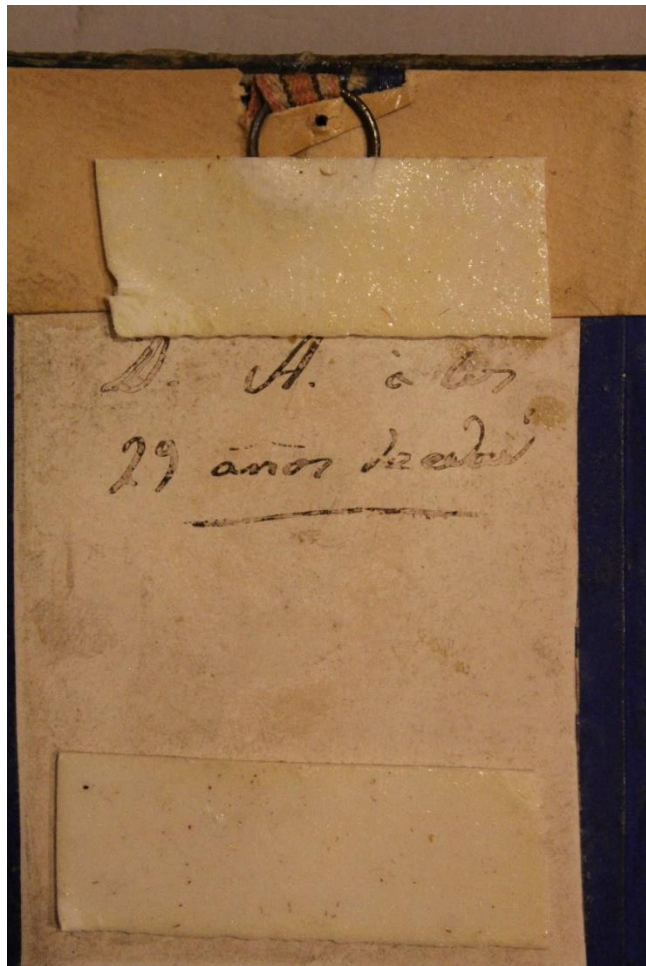 D. A. à los
29 años de edad